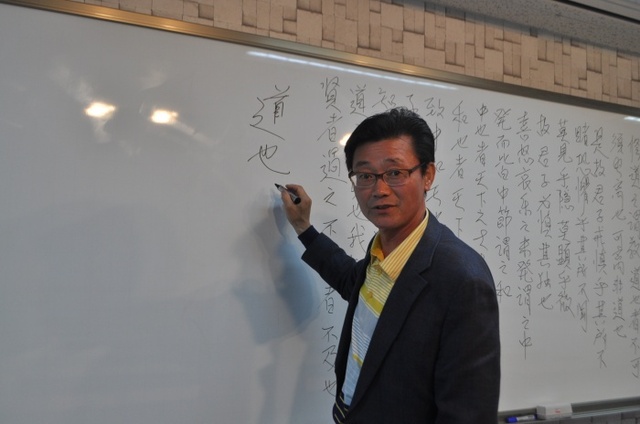 須臾離也可離非道也
是故君子戒慎乎其所不
睹恐懼乎其所不聞
莫見乎隱莫顯乎微
故君子慎其獨也
喜怒哀樂之未發謂之中
發而皆中節謂之和
中也者天下之大
和也者天下
致中
知
道 也我
賢者過之不 者不及也
道也